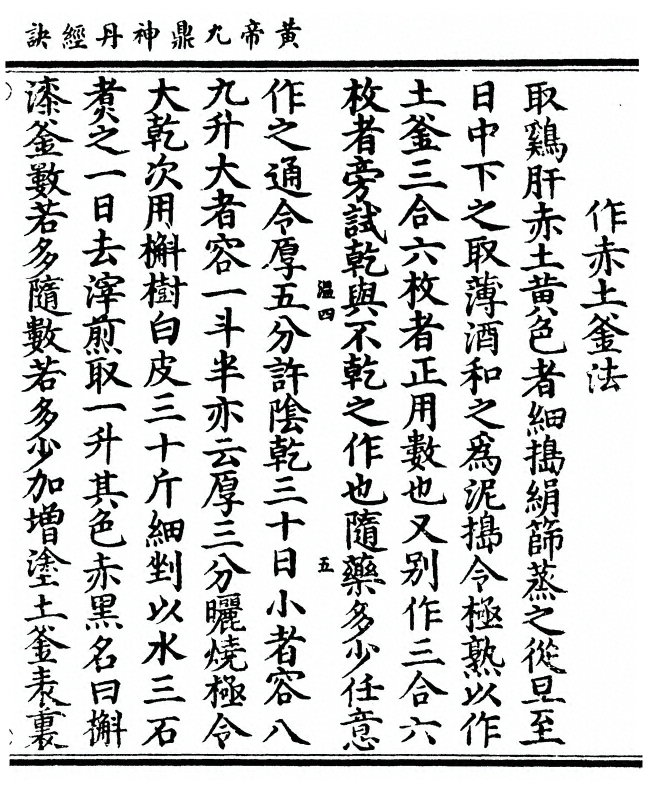 黃帝九鼎神丹經訣
作赤土釜法
取鷄肝赤土黄色者細搗絹篩蒸之從旦至
日中下之取薄酒和之爲泥搗令極熟以作
土釜三合六枚者正用數也又别作三合六
枚者旁試乾與不乾之作也隨藥多少任意
温四
五
作之通令厚五分許陰乾三十日小者容八
九升大者容一斗半亦云厚三分曬燒極令
大乾次用槲樹白皮三十斤細剉以水三石
煑之一日去滓煎取一升其色赤黑名曰槲
漆釜數若多隨數若多少加增塗土釜表裏